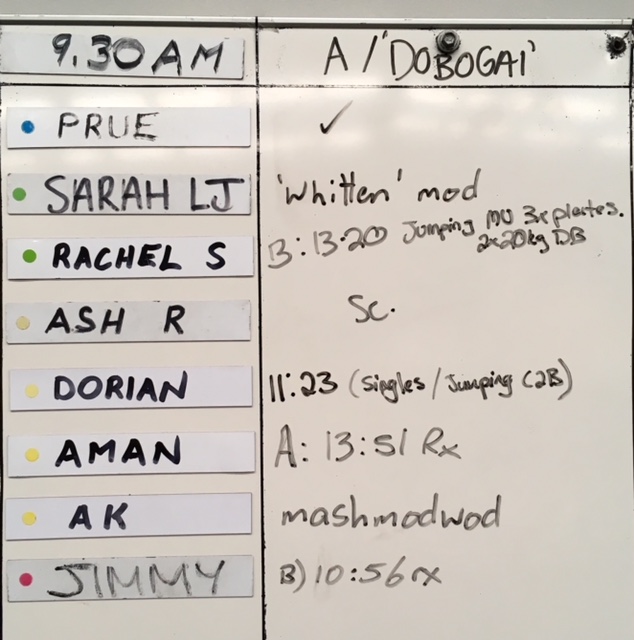 9.30AM A/'DOBOGAI'
PRUE ✓
SARAH LJ 'Whitten' mod
RACHEL S B: 13.20 Jumping MU 3x plates.
2x20kg DB
ASH R Sc.
DORIAN 11:23 (Singles / Jumping C2B)
AMAN A: 13:51 Rx
AK mashmodwod
JIMMY B) 10:56 rx